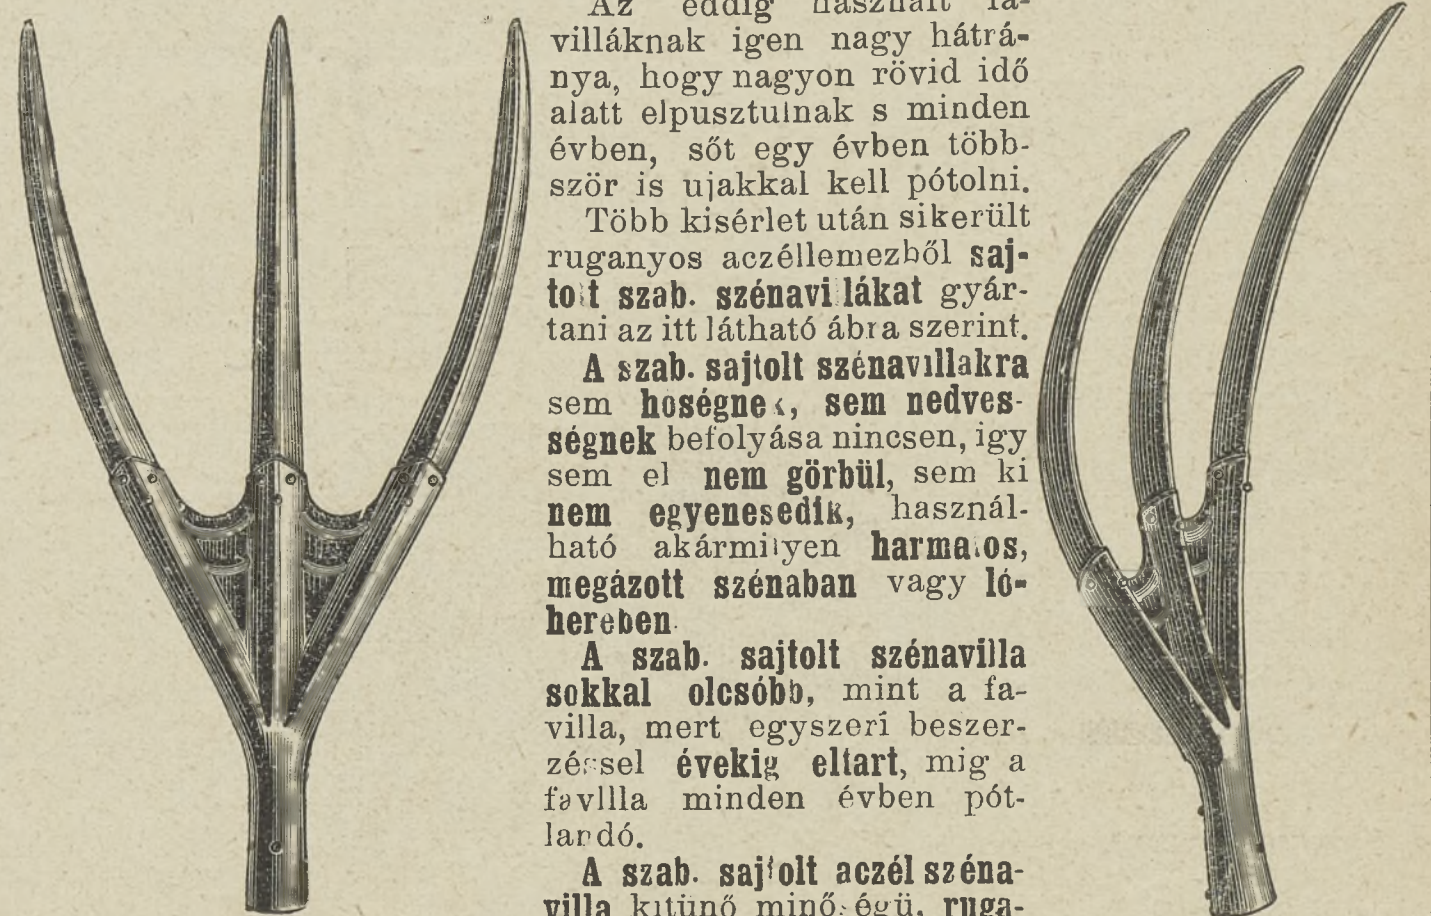 Az eddig használt fa-
villáknak igen nagy hátrá-
nya, hogy nagyon rövid idő
alatt elpusztulnak s minden
évben, sőt egy évben több-
ször is ujakkal kell pótolni.
Több kisérlet után sikerült
ruganyos aczéllemezből saj-
tolt szab. szénavillákat gyár-
tani az itt látható ábra szerint.
A szab. sajtolt szénavillakra
sem hoségnek, sem nedves-
ségnek befolyása nincsen, igy
sem el nem görbül, sem ki
nem egyenesedik, használ-
ható akármilyen harmatos,
megázott szénaban vagy ló-
hereben.
A szab. sajtolt szénavilla
sokkal olcsóbb, mint a fa-
villa, mert egyszeri beszer-
zéssel évekig eltart, mig a
favilla minden évben pót-
landó.
A szab. sajtolt aczél széna-
villa kitünő minőségü, ruga-